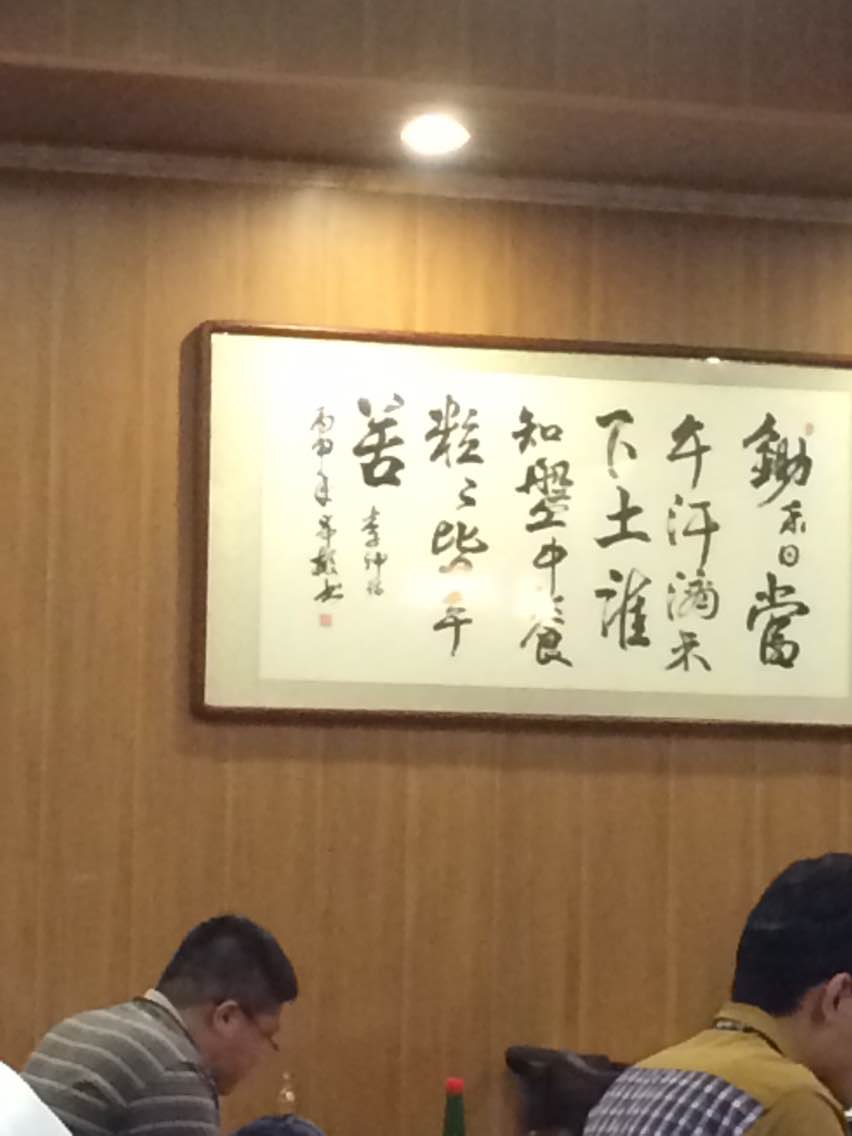 鋤禾日當
午汗滴禾
下土誰
知盤中餐
粒々皆辛
苦
李紳詩
丙申年